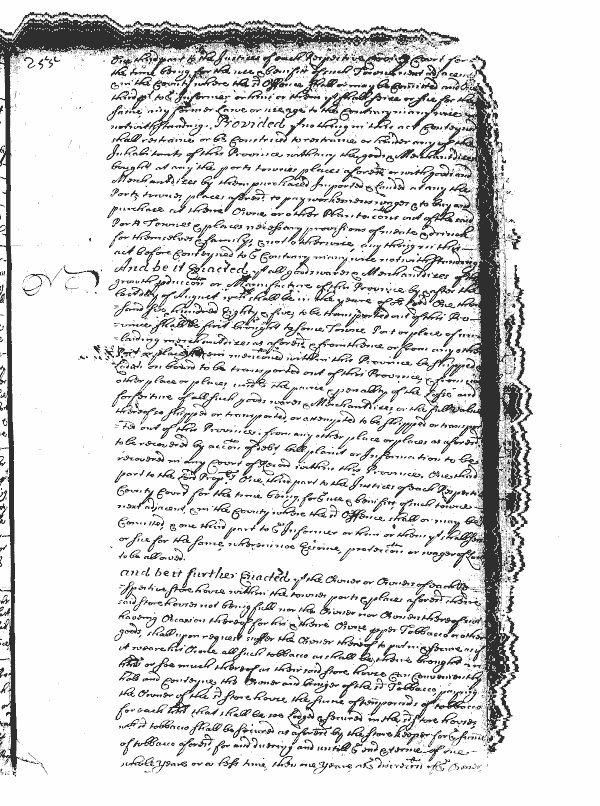 253
One third part to the Justices of each Respective County Court for
the time being for the use & benifitt of such Towne next adjacent
& in the County where the sd Offence shall or may be Comitted and one
third pt to ye Informer or him or them yt shall seise or sue for the
same any former Law or useage to the Contrary in any wise
notwithstanding. Provided yt nothing in this act Conteyned
shall restraine or be Construed to restraine or hinder any of the
Inhabitants of this Province with any the goods & Merchandizes
bought at any the ports townes places aforesd or with goods and
Merchandizes by them purchased Imported & landed at any the
Ports townes places aforesd to pay workemens wages & to buy and
purchase at theire Owne or other Plantacons out of the said
Ports Townes & places necessary provisions of meate & drinck
for themselves & family & not otherwise any thing in this
act before Conteyned to ye Contrary in any wise notwithstanding
And be it Enacted yt all goods wares & Merchandizes of the
growth producon or Manufacture of this Province by & after the
last day of August wch shall be in the yeare of or Lord One thou
sand six hundred Eighty & five to be transported out of this Pro
vince shall be first brought to some Towne Port or place of
lading merchandizes as aforesd & from thence or from any other
Port or place herein mencioned within this Province be shipped
laden on board to be transported out of this Province & from no
other place or places, under the paine & penalty of the Losse and
forfeiture of all such goods wares & Merchandizes or the full Value
thereof so shipped or transported or attempted to be shipped or transpor
ted out of this Province from any other place or places as aforesd
to be recovered by accon of debt bill plaint or Information to be
recovered in any Court of Record within this Province. One third
part to the Lord Propry One third part to the Justices of each Respective
County Court for the time being for ye use & benifitt of such towne
next adjacent & in the County where the sd Offence shall or may be
Comitted & one third part to ye Informer or him or them yt shall seise
or sue for the same wherein noe Essoine, proteccon or wager of law
to be allowed.
and be it further Enacted yt the Owner or Owners of each Re
spective store house within the townes ports & places aforesd theire
said store houses not being full nor the Owner nor Owners thereof not
having Occasion thereof for his & theire Owne proper Tobbacco or other
goods shall upon request suffer the Owner thereof to putt in & secure any
at reasonable
or soe much thereof as their said store house can Conveniently
hold and conteyne the Owner and bringer of the sd Tobbacco paying
the Owner of the sd store house the sume of tenn pounds of tobbacco
for each hhd that shall be soe lodged & secured in the sd store houses
wch sd tobbacco shall be secured as aforesd by the store keeper for ye same
of tobbacco aforesd for and during and untill ye end & terme of one
whole Yeare or a less time then one Yeare att ye discretion of ye Owner